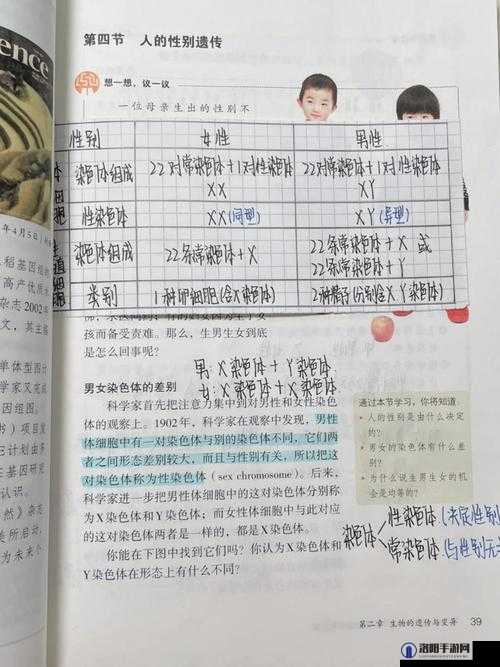 ence
年4月5日
稻基因组的
高产优质水
杂志2002年
文，其主编
单体型图计
学家又完成
因组图。
书）项目
它计划由
主基因研究
认识。
然》杂志
所启动，
为未来个
第四节 人的性别遗传
想一想，议一议
一位母亲生出的性别不
性别 女性 男性
体细胞 染色体组成 22对常染色体+1对性染色体 XX 22对常染色体+1对性染色体 XY
性染色体 XX(同型) XY(异型)
生殖细胞 染色体组成 22条常染色体+X 22条常染色体+X 或
22条常染色体+Y
类别 1种卵细胞(含X染色体) 2种精子(分别含X、Y染色体)
孩而备受责难。那么，生男生女到底
是怎么回事呢？
男：X染色体+Y染色体
女：X染色体+X染色体
男女染色体的差别
科学家首先把注意力集中到对男性和女性染色体
的观察上。1902年，科学家在观察中发现，男性
体细胞中有一对染色体与别的染色体不同，它们两
者之间形态差别较大，而且与性别有关，所以把这
对染色体称为性染色体（sex chromosome）。后来，
科学家进一步把男性体细胞中的这对染色体分别称
为X染色体和Y染色体；而女性体细胞中与此对应
的这对染色体两者是一样的，都是X染色体。
你能在下图中找到它们吗？你认为X染色体和
Y染色体在形态上有什么不同？
通过本节学习，你将知道：
• 人的性别是由什么决定
的？
• 男女的染色体有什么差
别？
• 为什么说生男生女的机
会是均等的？
染色体
性染色体(决定性别)
常染色体(与性别无
第二章 生物的遗传与变异 39
洛阳手游网